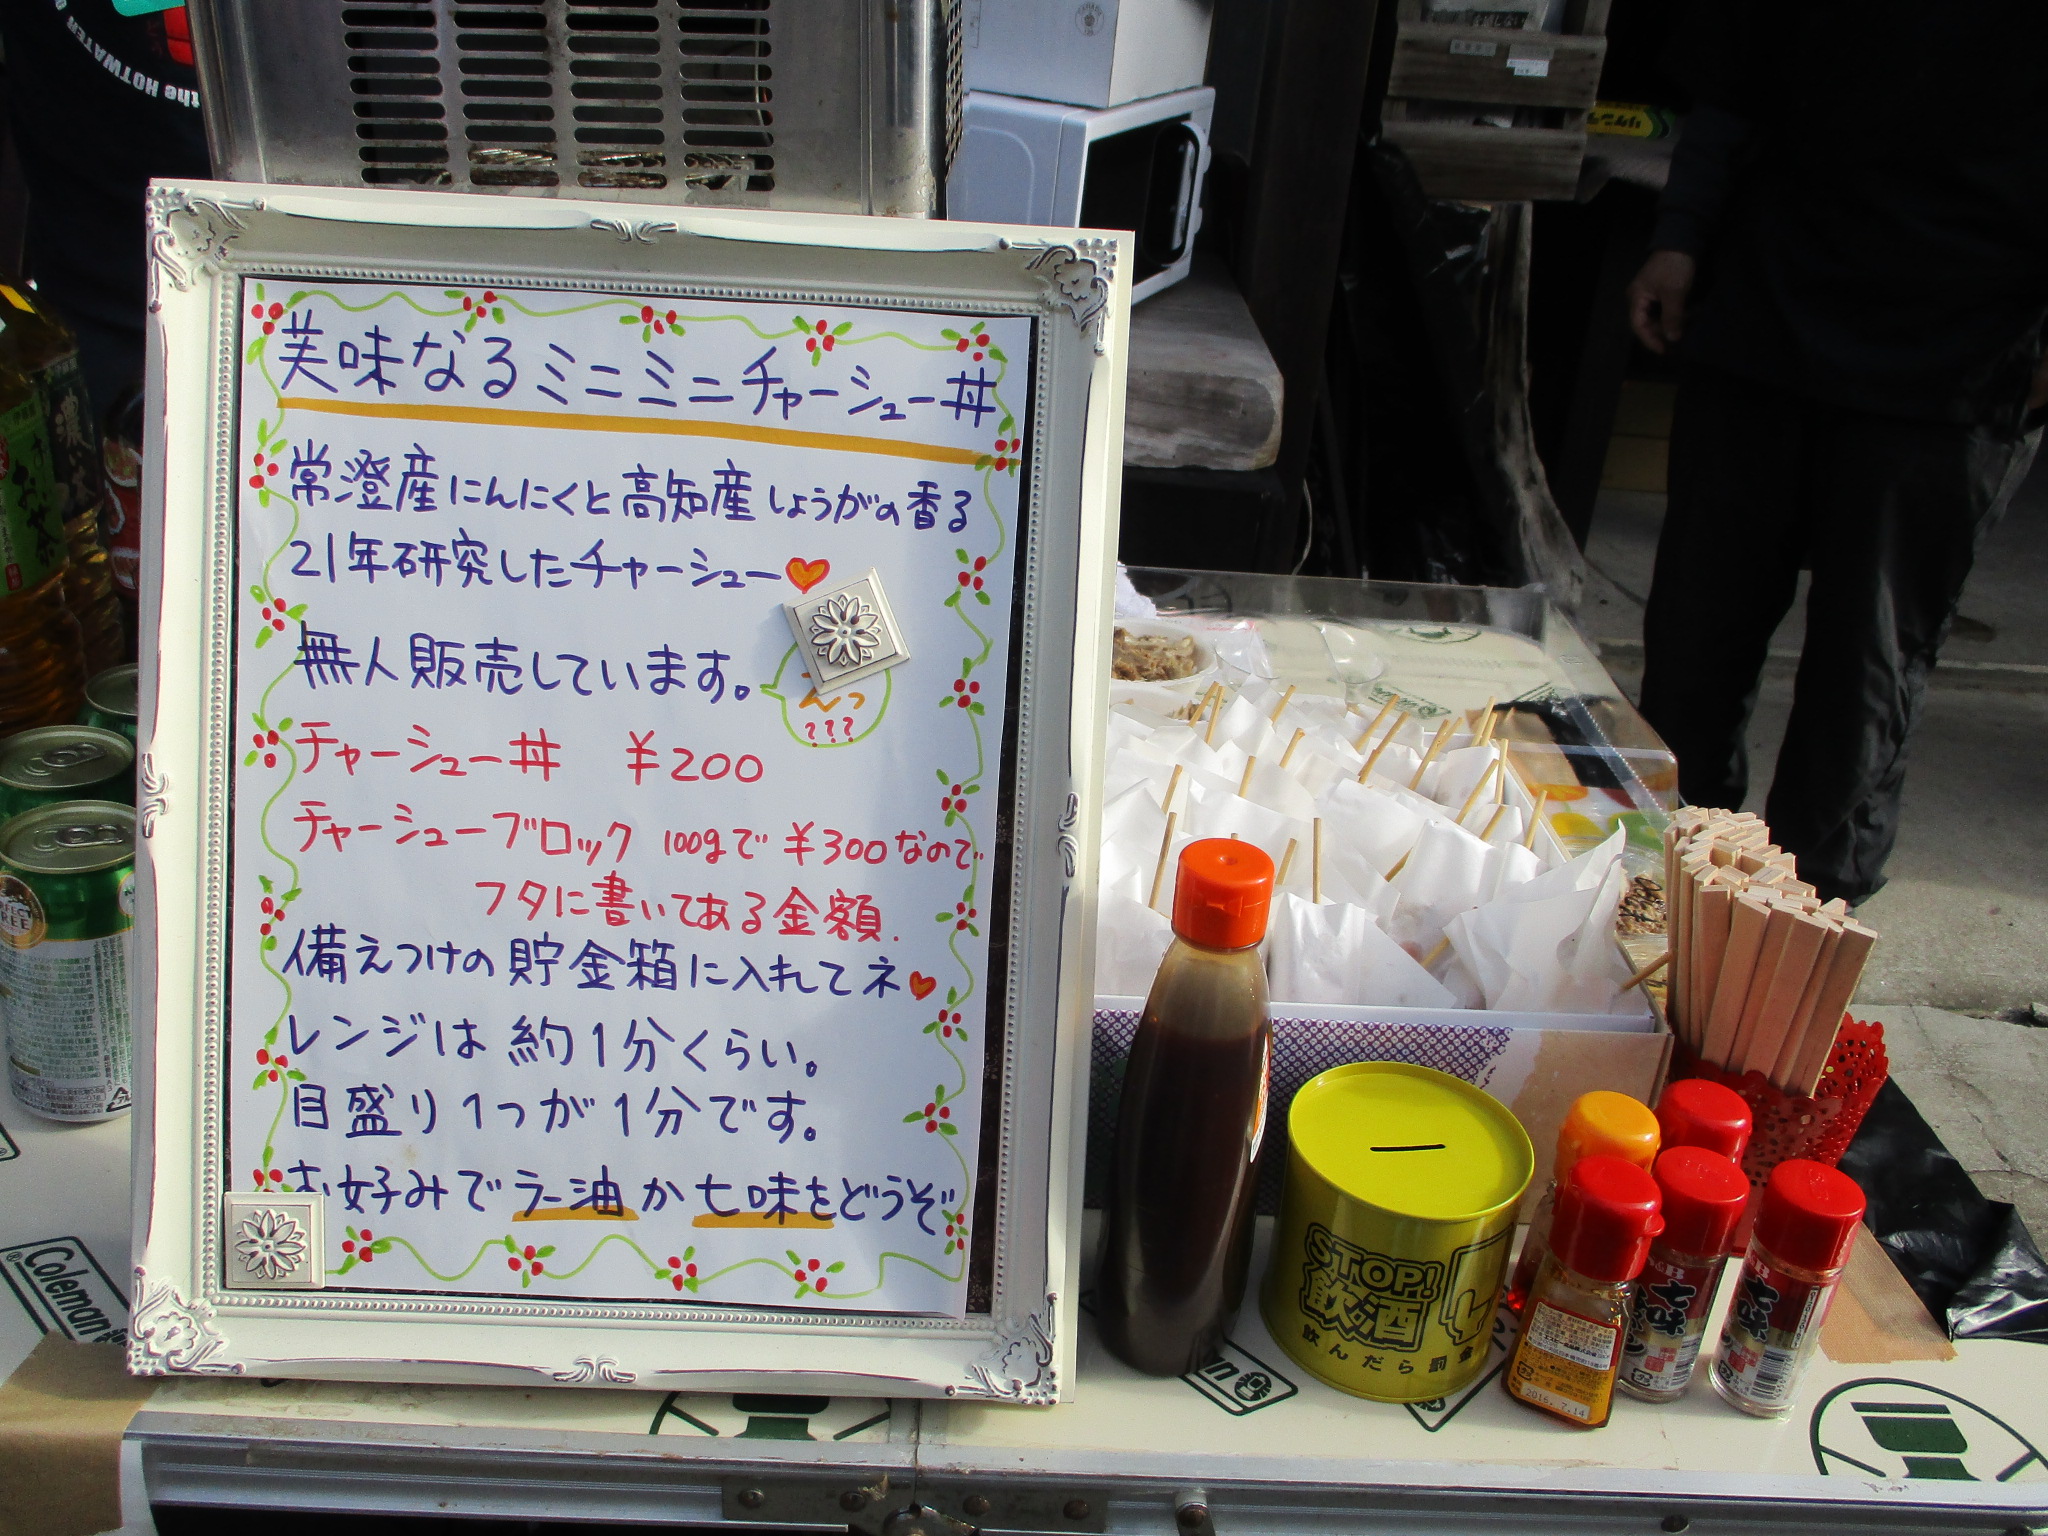 the HOTWATER
美味なるミニミニチャーシュー丼
常澄産にんにくと高知産しょうがの香る
21年研究したチャーシュー
無人販売しています。
えっ
???
チャーシュー丼 ¥200
チャーシューブロック 100gで ¥300なので
フタに書いてある金額.
備えつけの貯金箱に入れてネ
レンジは約1分くらい。
目盛り1つが1分です。
お好みでラー油か七味をどうぞ
濃い
お〜いお茶
PERFECT
FREE
Coleman
STOP!
飲酒
飲んだら罰金
2016.7.14
S&B
七味
七味